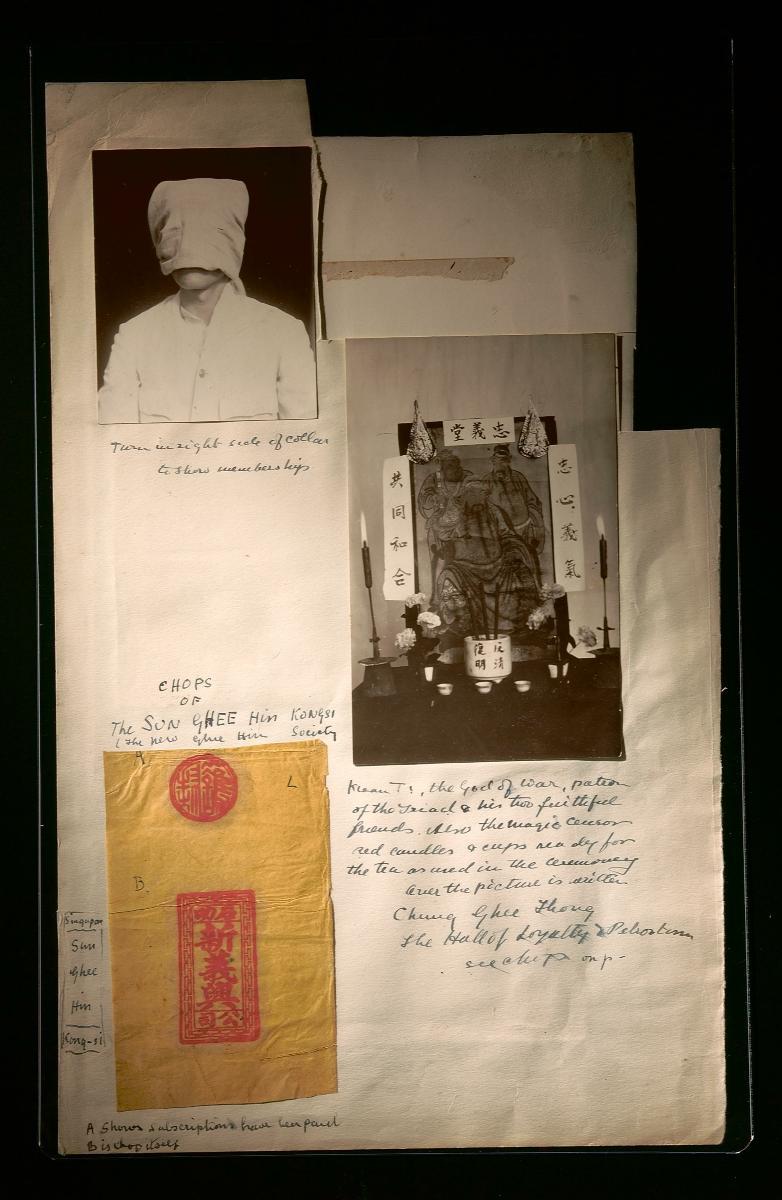 Turn in right side of collar
to show memberships
忠義堂
共同和合
忠心義氣
反清
復明
Kwan Ti, the God of War, patron
of the Triad & his two faithful
friends. Also the magic censor
red candles & cups ready for
the tea as used in the ceremony
Over the picture is written
Chung Ghee Thong
The Hall of Loyalty &
see chops on p-
CHOPS
OF
The SUN GHEE HIN KONGSI
(The New Ghee Hin Society
A
L
B.
新義興
公司
Singapore
Sun
Ghee
Hin
Kong-si
A Shows subscriptions have been paid
B is chop itself